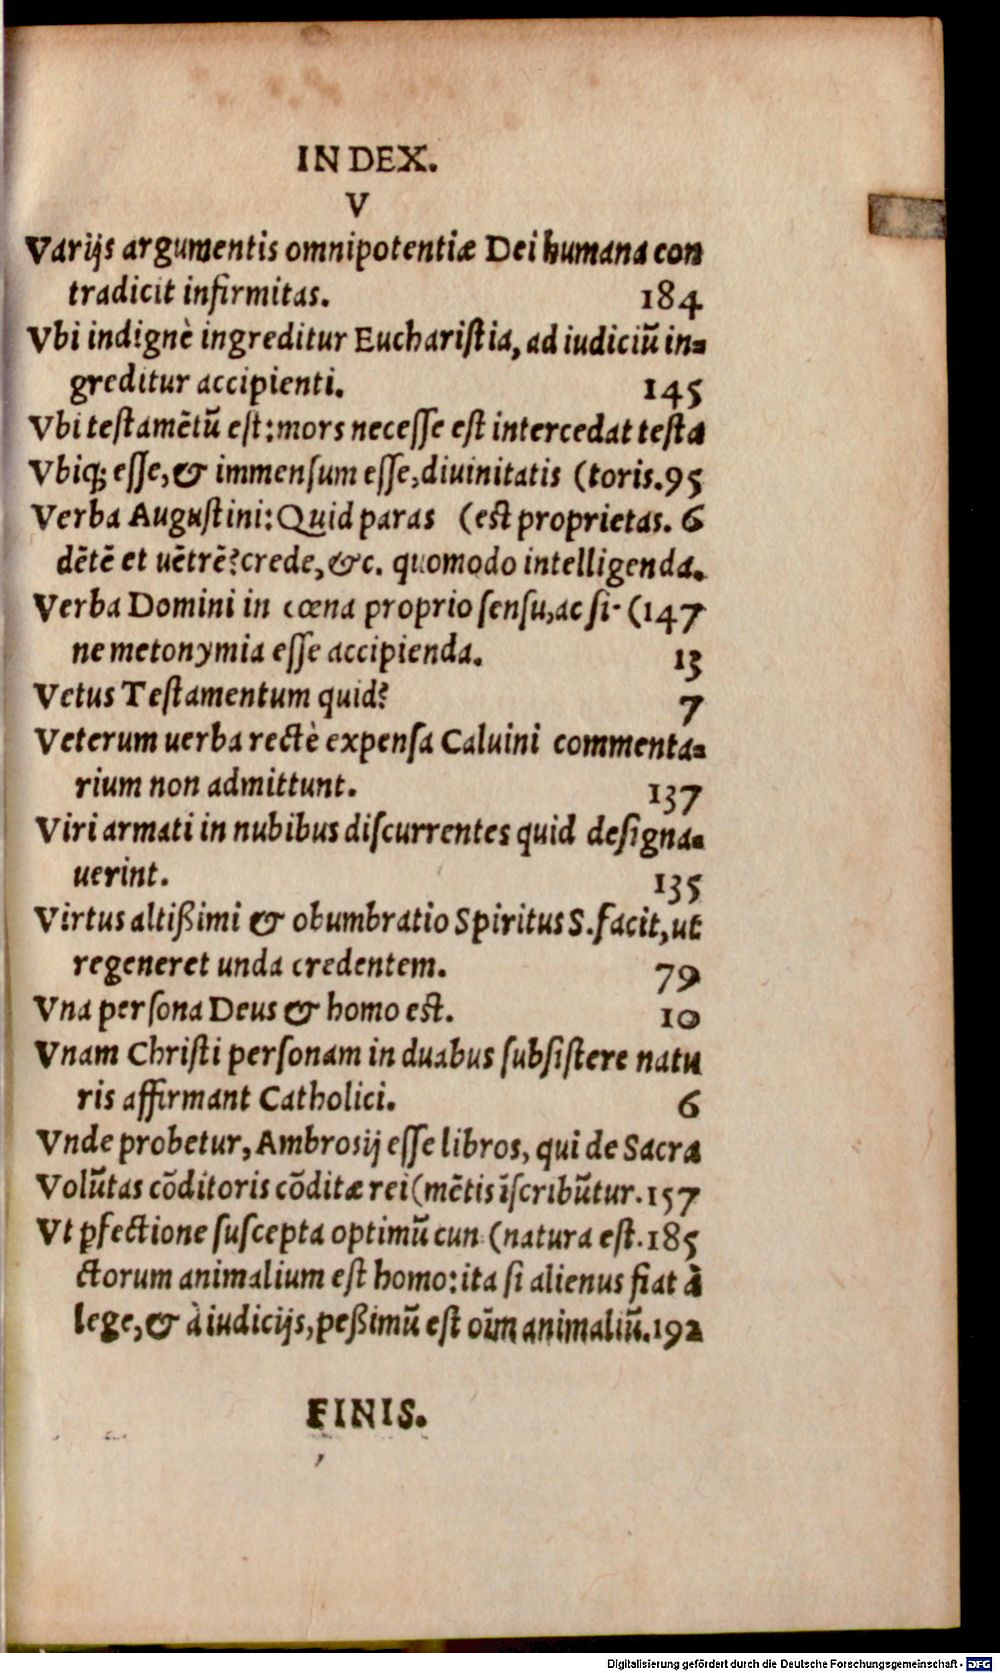 INDEX.
V
Varijs argumentis omnipotentiæ Dei humana con
tradicit infirmitas. 184
Vbi indignè ingreditur Euchariſtia, ad iudiciũ in-
greditur accipienti. 145
Vbi teſtamẽtũ eſt: mors neceſſe eſt intercedat teſta
Vbiq; eſſe, & immenſum eſſe, diuinitatis (toris. 95
Verba Auguſtini: Quid paras (eſt proprietas. 6
dẽtẽ et uẽtrẽ? crede, &c. quomodo intelligenda.
Verba Domini in cœna proprio ſenſu, ac ſi- (147
ne metonymia eſſe accipienda. 13
Vetus Teſtamentum quid? 7
Veterum uerba rectè expenſa Caluini commenta-
rium non admittunt. 137
Viri armati in nubibus diſcurrentes quid deſigna-
uerint. 135
Virtus altißimi & obumbratio Spiritus S. facit, ut
regeneret unda credentem. 79
Vna perſona Deus & homo eſt. 10
Vnam Chriſti perſonam in duabus ſubſiſtere natu
ris affirmant Catholici. 6
Vnde probetur, Ambrosij eſſe libros, qui de Sacra
Volũtas cõditoris cõditæ rei (mẽtis ĩſcribũtur. 157
Vt ꝑfectione ſuſcepta optimũ cun (natura eſt. 185
ctorum animalium eſt homo: ita ſi alienus fiat à
lege, & à iudicijs, peßimũ eſt oĩm animaliũ. 192
FINIS.
Digitalisierung gefördert durch die Deutsche Forschungsgemeinschaft - DFG